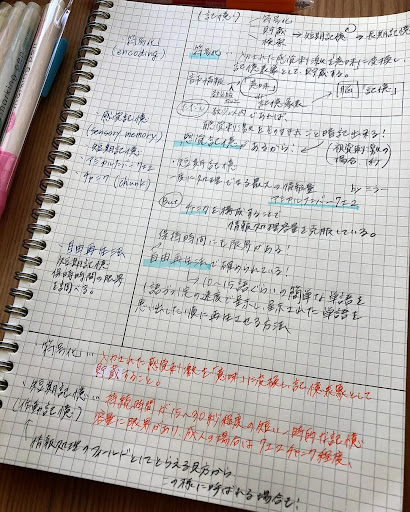 (記憶)
符号化
貯蔵 → 短期記憶 → 長期記憶
検索
符号化
(encoding)
符号化… 入力された感覚刺激を意味に変換し、
記憶表象として、貯蔵する。
「意味」
記憶表象
「脳」「記憶」
数ミリ以内であれば、
感覚刺激をそのまますること暗記出来る!
感覚記憶
(sensory memory)
短期記憶
マジカルナンバー7±2
チャンク(chunk)
感覚記憶があるから!
(視覚刺激の
場合 1秒)
・短期記憶
一度に処理できる最大の情報量 by ミラー
マジカルナンバー7±2
But チャンクを構成することで
情報処理容量を克服している。
保持時間にも限界がある!
自由再生法で確かめられている!
自由再生法
短期記憶
保持時間の限界
を調べる。
→10~15語ぐらいの簡単な単語を
1語ずつ一定の速度で提示し、提示された単語を
思い出したい順に再生させる方法
符号化… 入力された感覚刺激を「意味」に変換し、記憶表象として
貯蔵すること。
短期記憶… 持続時間が15~30秒程度の短い一時的な記憶。
(作動記憶) 容量に限界があり、成人の場合は7±2チャンク程度。
↑情報処理のフィールドとしてとらえる見方から
この様に呼ばれる場合も!